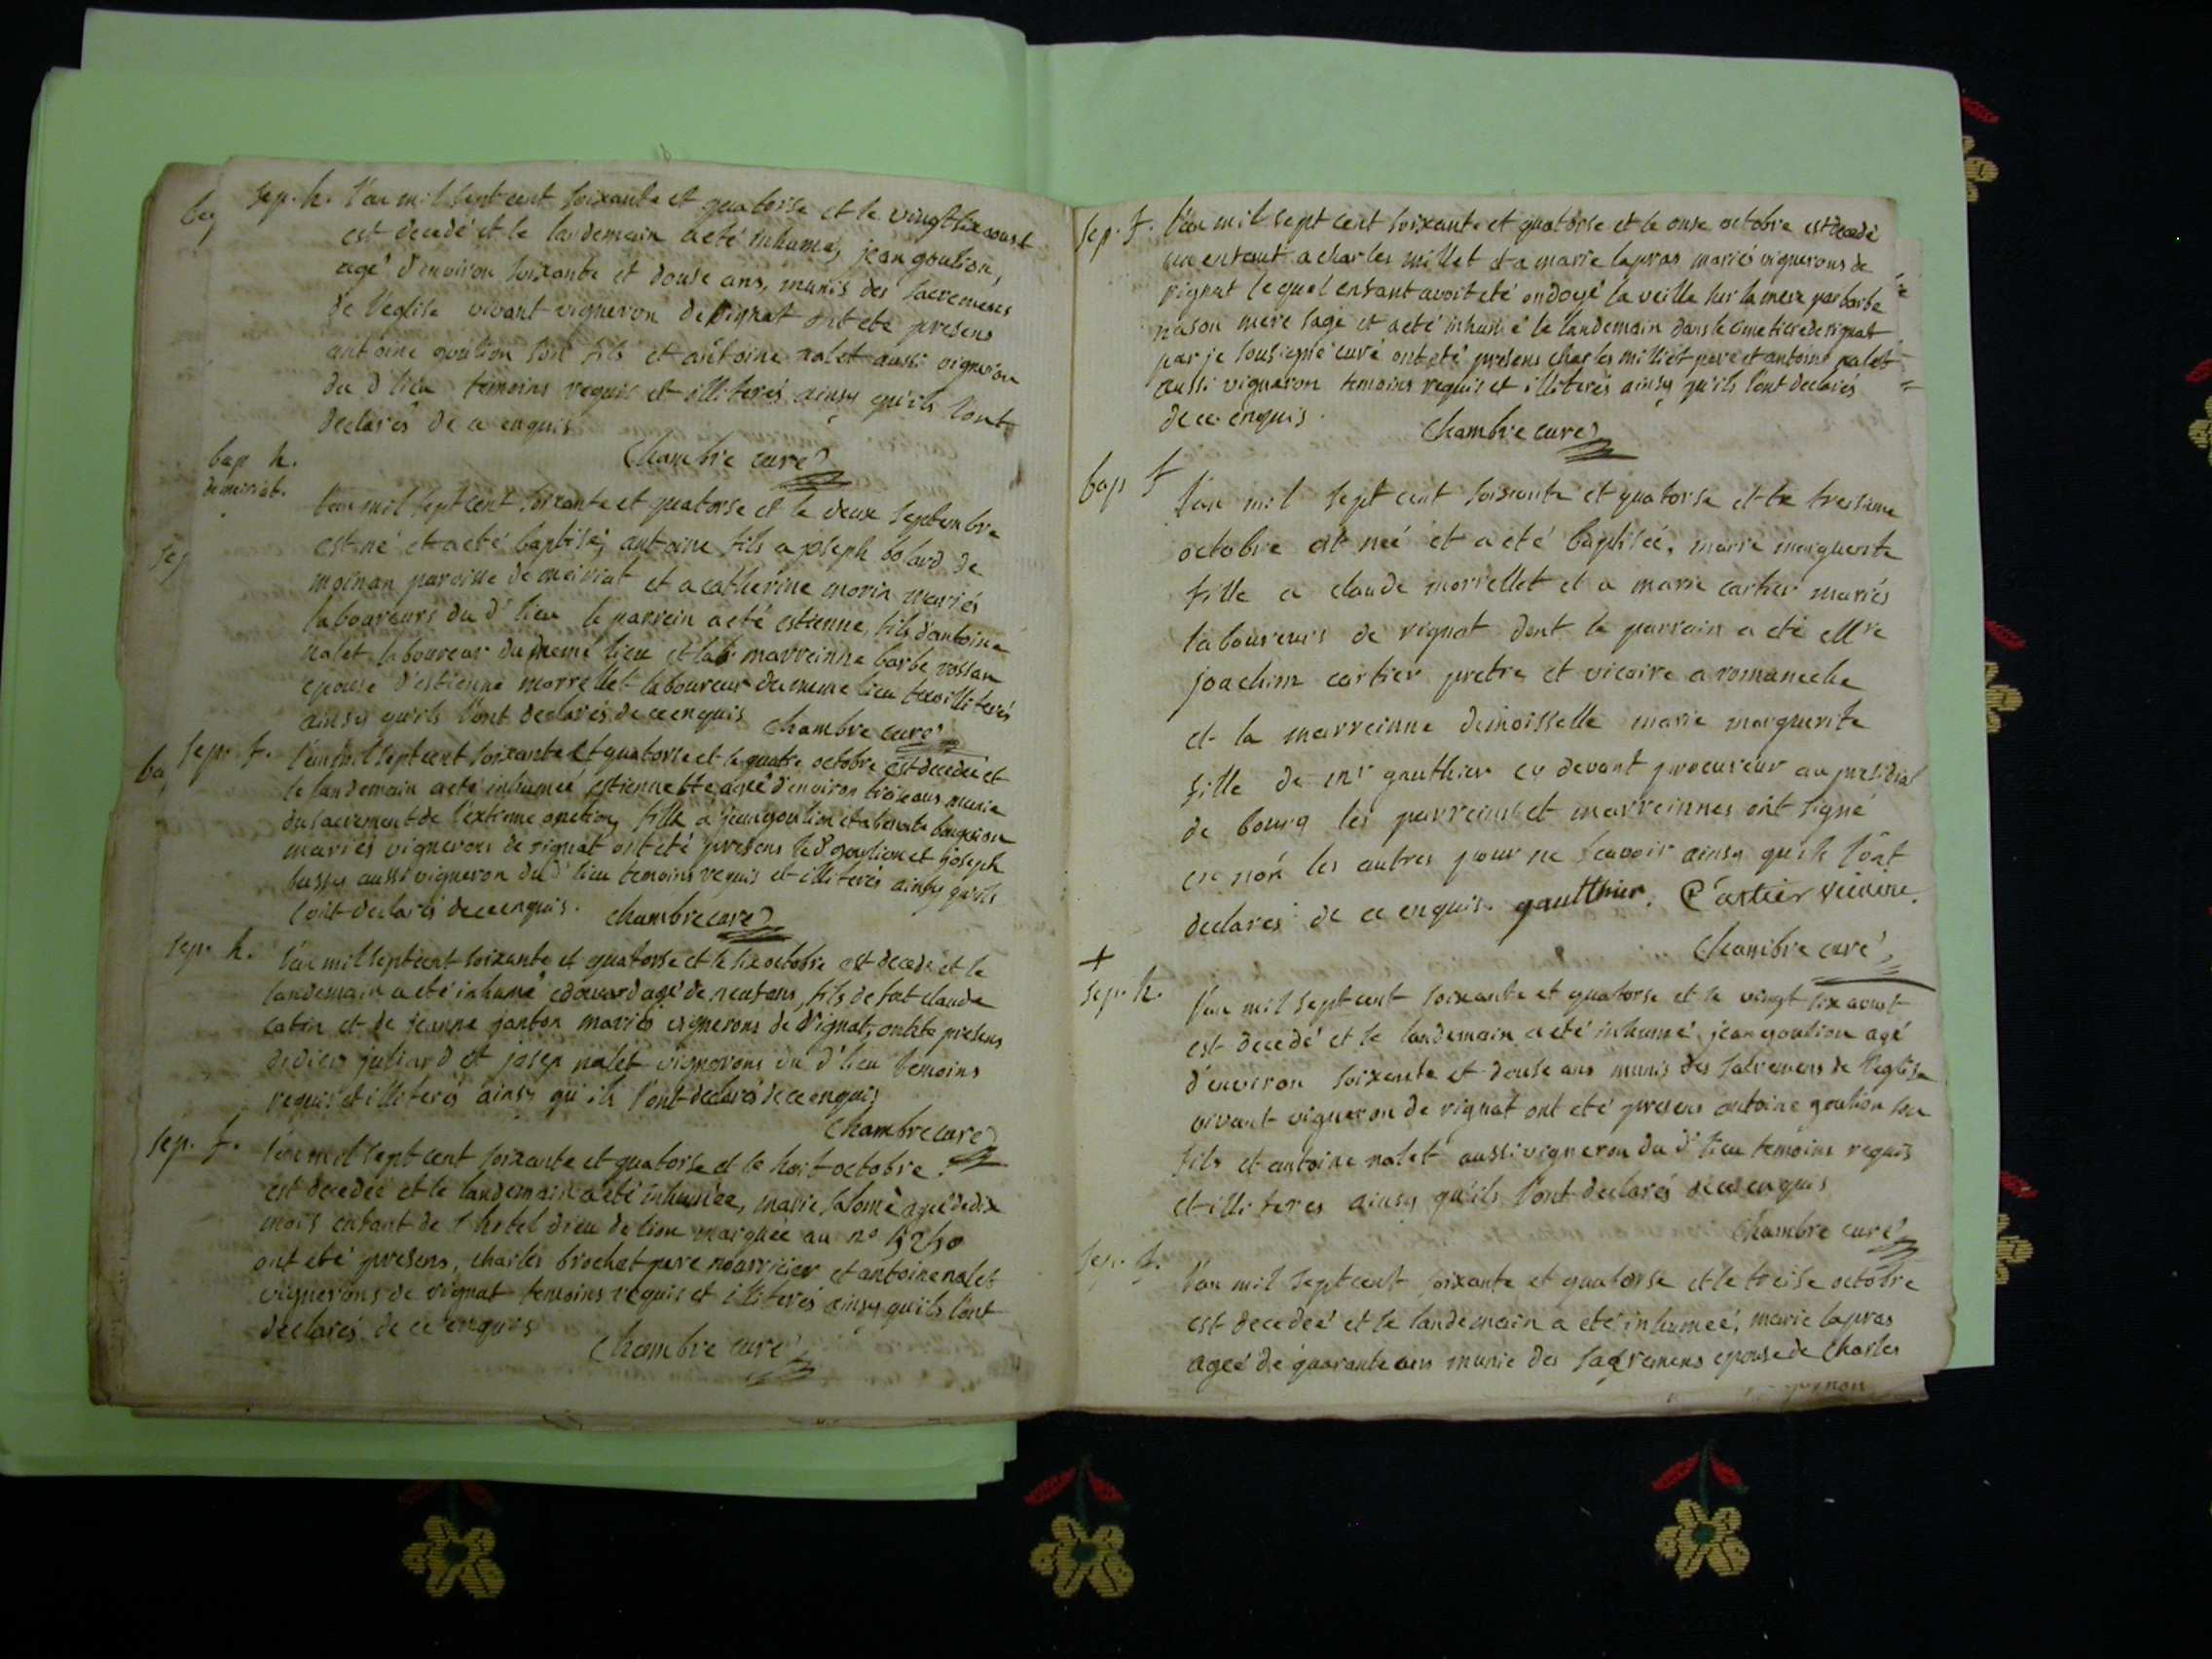 sep. h. l'an mil sept cent soixante et quatorse et le vingt six aoust
est decedé et le landemain a eté inhumé, jean goulion,
agé d'environ soixante et douse ans, munis des sacremens
de l'eglise vivant vigneron de rignat ont eté presens
antoine goulion son fils et antoine nalet aussi vigneron
du d lieu temoins requis et illiterés ainsy qu'ils l'ont
declarés de ce enquis
Chambre curé
bap h.
de meiriat.
l'an mil sept cent soixante et quatorse et le deux septembre
est né et a eté baptisé, antoine fils a joseph bolard de
moinan paroisse de meiriat et a catherine morin mariés
laboureurs du d' lieu le parrein a eté estienne, fils d'antoine
nalet laboureur du meme lieu et la marreinne barbe vossan
epouse d'estienne morrellet laboureur du meme lieu tous illiterés
ainsy qu'ils l'ont declarés de ce enquis Chambre curé
sep. f. l'an mil sept cent soixante et quatorse et le quatre octobre est decedeé et
le landemain a eté inhumeé estiennette ageé d'environ trois ans munie
du sacrement de l'extreme onction, fille a jean goulion et a benoite
mariés vignerons de rignat ont eté presens le d goulion et joseph
aussi vigneron du d' lieu temoins requis et illiterés ainsy qu'ils
l'ont declarés de ce enquis. Chambre curé
sep. h. l'an mil sept cent soixante et quatorse et le six octobre est decedé et le
landemain a eté inhumé edouard agé de neuf ans, fils de fut claude
catin et de jeanne janton mariés vignerons de rignat, ont eté presens
didier juliard et josep nalet vignerons du d' lieu temoins
requis et illiterés ainsy qu'ils l'ont declarés de ce enquis
Chambre curé
sep. f. l'an mil sept cent soixante et quatorse et le huit octobre
est decedée et le landemain a eté inhumée, marie salomé ageé de dix
mois enfant de l'hotel dieu de lion marquée au no
ont eté presens, charles brochet pere nourricier et antoine nalet
vignerons de rignat temoins requis et illiterés ainsy qu'ils l'ont
declarés de ce enquis
Chambre curé
sep. f. l'an mil sept cent soixante et quatorse et le onse octobre est decedé
un enfant a charles millet et a marie lapras mariés vignerons de
rignat lequel enfant avoit eté ondoyé la veille sur la mere par barbe
nason mere sage et a eté inhumé le landemain dans le cimetiere de rignat
par je sousigné curé ont eté presens charles milliet pere et antoine nalet
aussi vigneron temoins requis et illiterés ainsy qu'ils l'ont declarés
de ce enquis.
Chambre curé
bap f
l'an mil sept cent soixante et quatorse et le tresieme
octobre est née et a eté baptiseé, marie marguerite
fille a claude morrellet et a marie cartier mariés
laboureurs de rignat dont le parrain a eté Mre
joachim cartier pretre et vicaire a romaneche
et la marreinne demoisselle marie marguerite
fille de mr gauthier cy devant procureur au presidial
de bourg les parreins et marreinnes ont signé
et non les autres pour ne scavoir ainsy qu'ils l'ont
declarés de ce enquis. gautthier. Cartier vicaire.
Chambre curé
+
sep. h.
l'an mil sept cent soixante et quatorse et le vingt six aoust
est decedé et le landemain a eté inhumé jean goulion agé
d'environ soixante et douse ans munis des sacremens de l'eglise
vivant vigneron de rignat ont eté presens antoine goulion son
fils et antoine nalet aussi vigneron du d' lieu temoins requis
et illiteres ainsy qu'ils l'ont declarés de ce enquis
Chambre curé
sep. f.
l'an mil sept cent soixante et quatorse et le treise octobre
est decedeé et le landemain a eté inhumeé, marie lapras
ageé de quarante ans munie des sacremens epouse de Charles